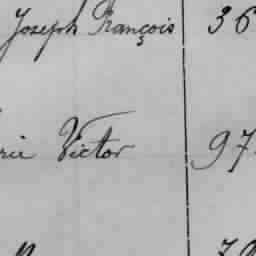 Joseph François 36
Victor 97